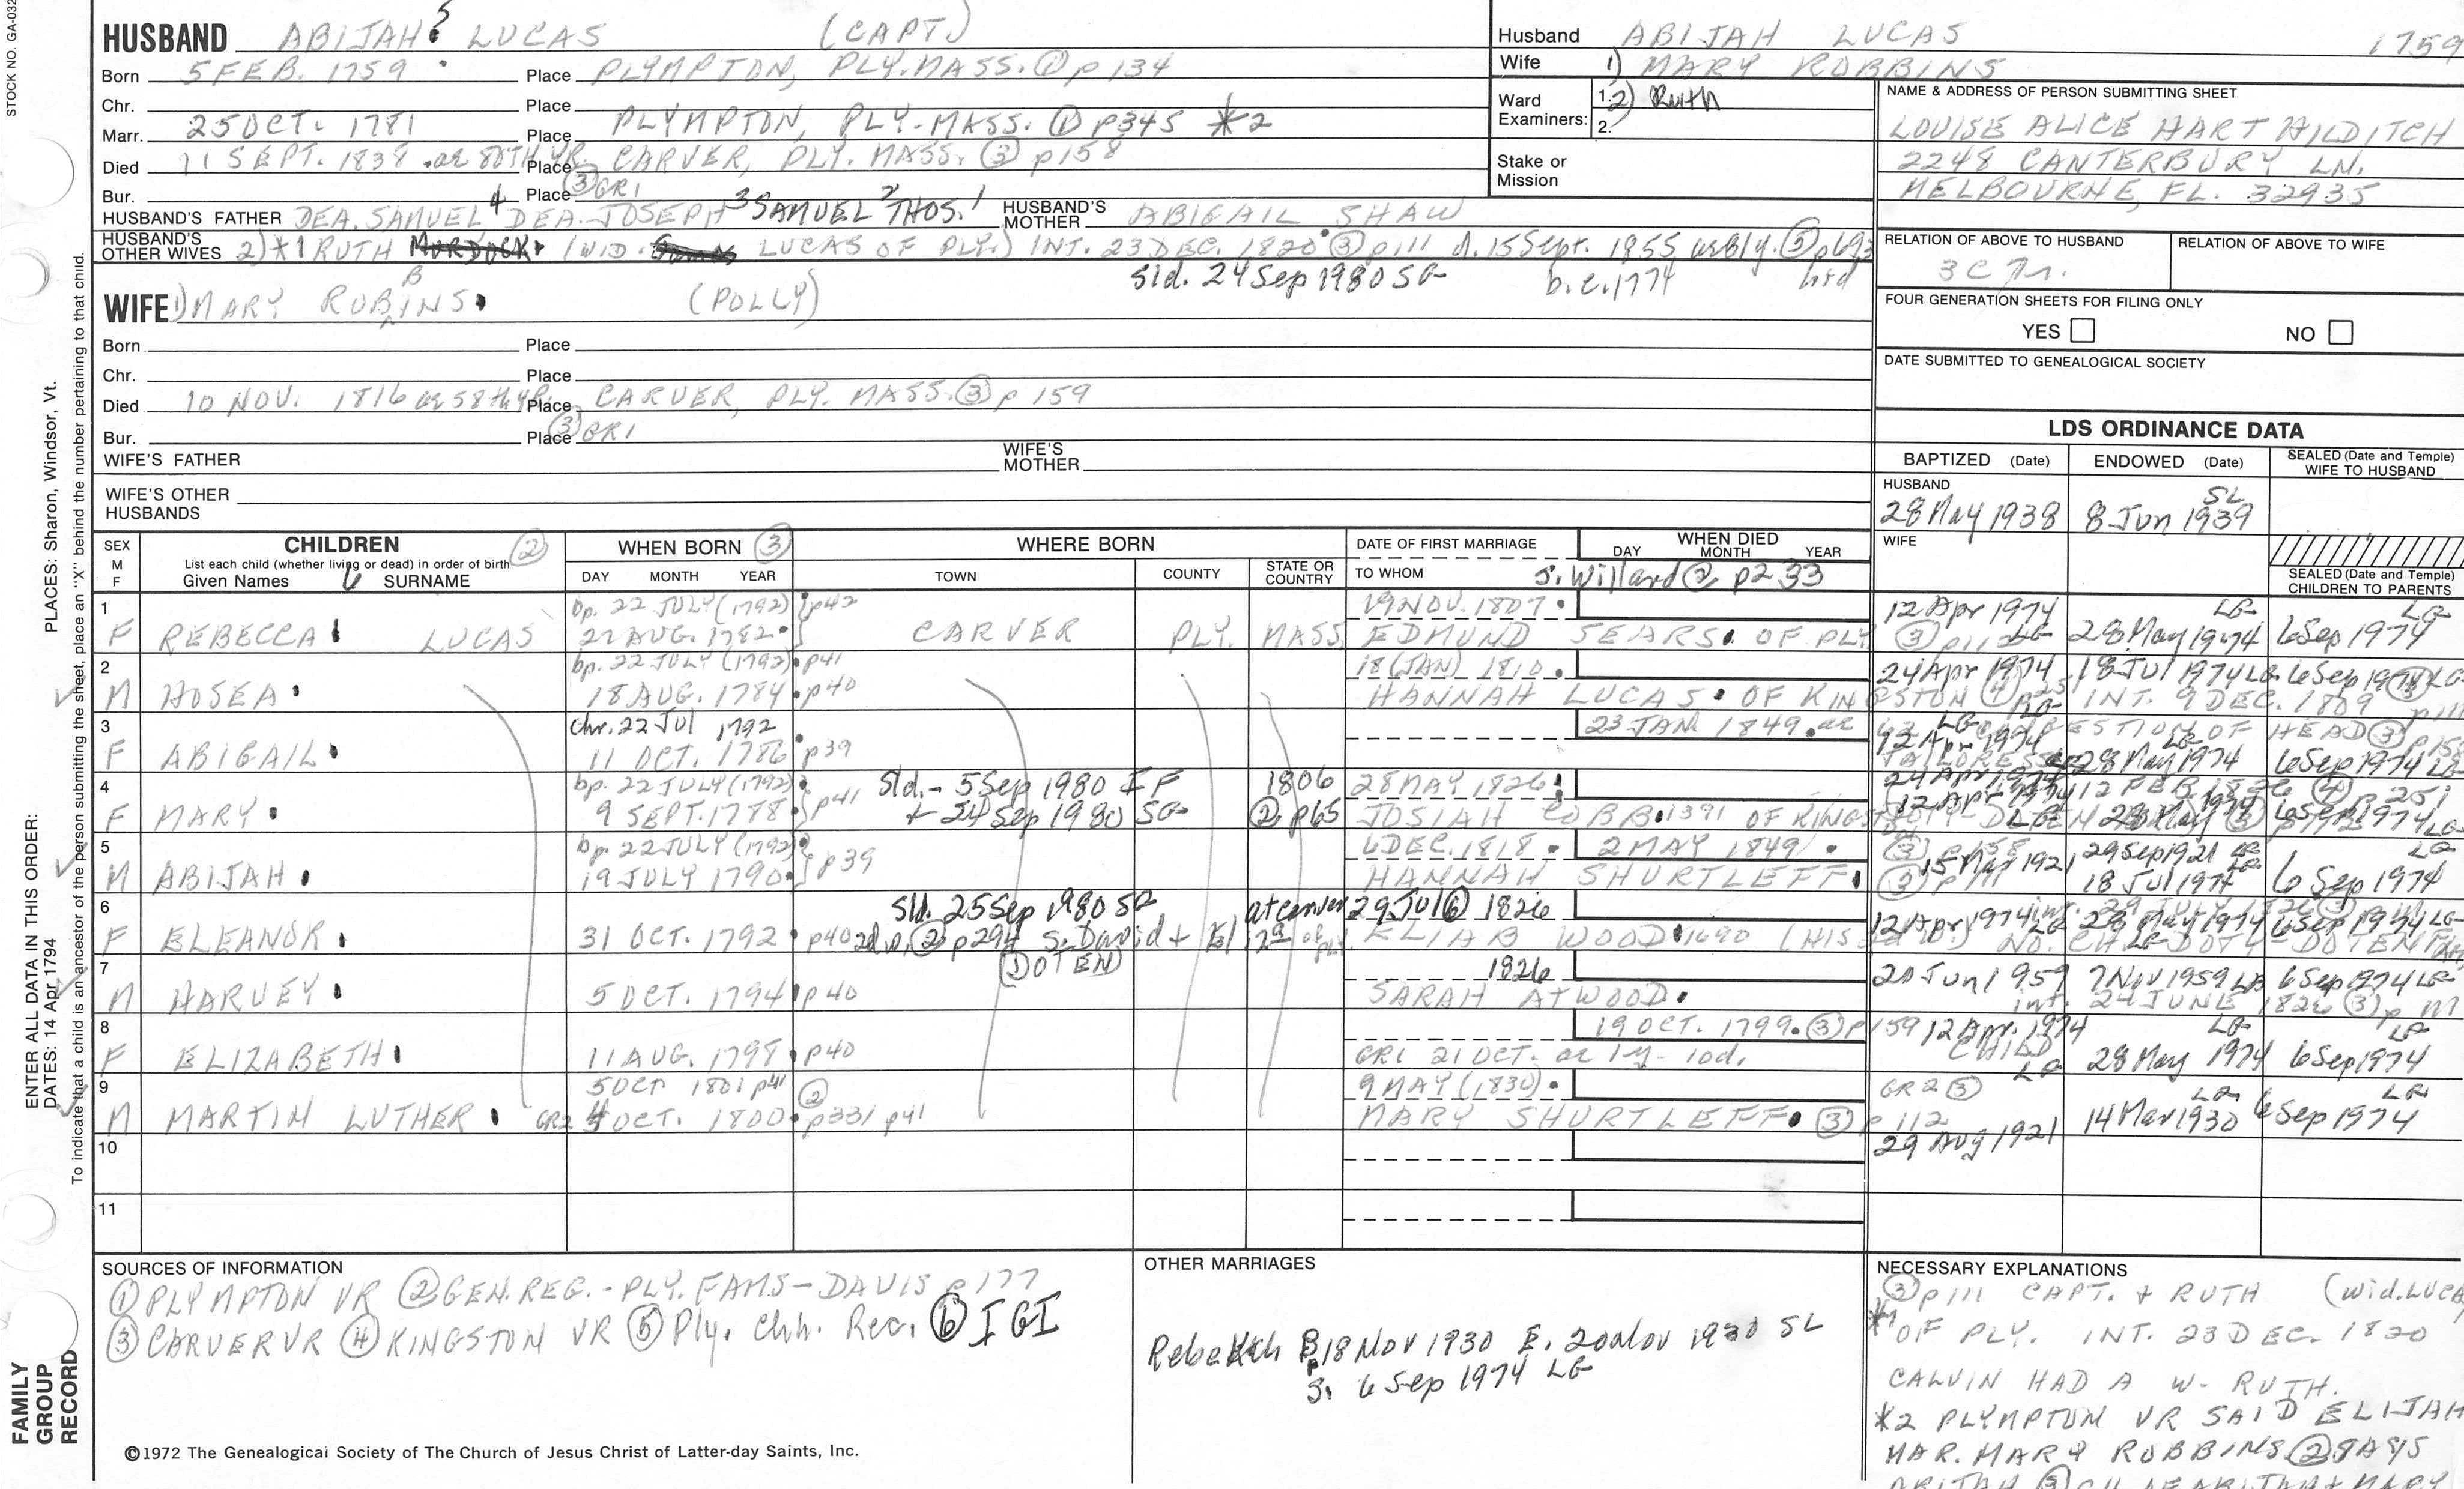 STOCK NO. GA-032
HUSBAND ABIJAH 5 LUCAS (CAPT)
Born 5 FEB. 1759 Place PLYMPTON, PLY. MASS. ① p 134
Chr. Place
Marr. 25 OCT. 1781 Place PLYMPTON, PLY. MASS. ① p345 *2
Died 11 SEPT. 1838 . ae 80TH YR. Place CARVER, PLY. MASS. ③ p158
Bur. Place ③ GR1
HUSBAND'S FATHER DEA. SAMUEL 4 DEA. JOSEPH 3 SAMUEL 2 THOS. 1 HUSBAND'S MOTHER ABIGAIL SHAW
HUSBAND'S OTHER WIVES 2) *1 RUTH (WID. LUCAS OF PLY.) INT. 23 DEC. 1820 ③ p111 d. 15 Sept. 1855
Sld. 24 Sep 1980 SG b. c. 1774
WIFE 1) MARY ROBBINS (POLLY)
Born Place
Chr. Place
Died 10 NOV. 1816 ae 58th yr. Place CARVER, PLY. MASS. ③ p 159
Bur. Place ③ GR1
WIFE'S FATHER WIFE'S MOTHER
WIFE'S OTHER HUSBANDS
Husband ABIJAH LUCAS 1759
Wife 1) MARY ROBBINS
Ward Examiners: 1. 2) Ruth
2.
Stake or Mission
NAME & ADDRESS OF PERSON SUBMITTING SHEET
LOUISE ALICE HART HILDITCH
2248 CANTERBURY LN.
MELBOURNE, FL. 32935
RELATION OF ABOVE TO HUSBAND RELATION OF ABOVE TO WIFE
3C 7r.
FOUR GENERATION SHEETS FOR FILING ONLY
YES NO
DATE SUBMITTED TO GENEALOGICAL SOCIETY
LDS ORDINANCE DATA
BAPTIZED (Date) ENDOWED (Date) SEALED (Date and Temple) WIFE TO HUSBAND
HUSBAND
28 May 1938 8 Jun 1939 SL
WIFE
SEALED (Date and Temple) CHILDREN TO PARENTS
SEX M F
CHILDREN ②
List each child (whether living or dead) in order of birth
Given Names SURNAME
WHEN BORN ③
DAY MONTH YEAR
WHERE BORN
TOWN COUNTY STATE OR COUNTRY
DATE OF FIRST MARRIAGE
TO WHOM
WHEN DIED
DAY MONTH YEAR
S. Willard ② p233
1 bp. 22 JULY (1792) p42 19 NOV. 1807. 12 Apr 1974 LG LG
F REBECCA LUCAS 22 AUG. 1782 CARVER PLY. MASS. EDMUND SEARS OF PLY ③ p112 28 May 1974 6 Sep 1974
2 bp. 22 JULY (1792) p41 18 (JAN) 1810. 24 Apr 1974 18 Jul 1974 LG 6 Sep 1974 LG
M HOSEA 18 AUG. 1784 p40 HANNAH LUCAS OF KINGSTON ④ INT. 9 DEC. 1809 p111
3 Chr. 22 Jul 1792 23 JAN 1849. ae CONGESTION OF HEAD ③
F ABIGAIL 11 OCT. 1786 p39 12 Apr 1974 TAILORESS 28 May 1974 6 Sep 1974 LG
4 bp. 22 JULY (1792) p41 Sld. - 5 Sep 1980 IF 1806 28 MAY 1826 24 Apr 1974 12 FEB. 1826 ④ p 251
F MARY 9 SEPT. 1788 + 24 Sep 1980 SG ② p65 JOSIAH COBB 1391 OF KINGSTON 12 Apr 1974 28 May 1974 6 Sep 1974 LG
5 bp. 22 JULY (1792) p39 6 DEC. 1818. 2 MAY 1849. ③ p158 29 Sep 1921 LG
M ABIJAH 19 JULY 1790 HANNAH SHURTLEFF ③ p111 15 Mar 1921 18 Jul 1974 6 Sep 1974
6 Sld. 25 Sep 1980 at Carver 29 Jul ⑥ 1826 int. 29 JULY 1826
F ELEANOR 31 OCT. 1792 p40 ② p294 S. David + ELIAB WOOD 1690 (HIS 12 Apr 1974 28 May 1974 6 Sep 1974 LG
① DOTEN NO. CH. DOTY-DOTEN FAM
7 1826 20 Jun 1959 7 Nov 1959 LA 6 Sep 1974 LG
M HARVEY 5 OCT. 1794 p40 SARAH ATWOOD. int. 24 JUNE 1826 ③ p 111
8 19 OCT. 1799. ③ p159 12 Apr. 1974 LG LG
F ELIZABETH 11 AUG. 1798 p40 GR1 21 OCT. ae 1y-10d. CHILD 28 May 1974 6 Sep 1974
9 5 OCT 1801 p41 ② 9 MAY (1830). GR2 ③ LG LG
M MARTIN LUTHER GR2 4 OCT. 1800. p331 p41 MARY SHURTLEFF. ③ p 112 14 Mar 1930 6 Sep 1974
10 29 Aug 1921
11
SOURCES OF INFORMATION
① PLYMPTON VR ② GEN. REG. - PLY. FAMS - DAVIS p 177
③ CARVER VR ④ KINGSTON VR ⑤ Ply. Chh. Rec. ⑥ IGI
©1972 The Genealogical Society of The Church of Jesus Christ of Latter-day Saints, Inc.
OTHER MARRIAGES
Rebekah Bp 18 Nov 1930 E. 20 Nov 1930 SL
S. 6 Sep 1974 LG
NECESSARY EXPLANATIONS
③ p 111 CAPT. + RUTH (wid. LUCA
*1 OF PLY. INT. 23 DEC. 1820
CALVIN HAD A W- RUTH.
*2 PLYMPTON VR SAID ELIJAH
MAR. MARY ROBBINS. ② SAYS
PLACES: Sharon, Windsor, Vt.
ENTER ALL DATA IN THIS ORDER:
DATES: 14 Apr 1794
To indicate that a child is an ancestor of the person submitting the sheet, place an "X" behind the number pertaining to that child.
FAMILY GROUP RECORD